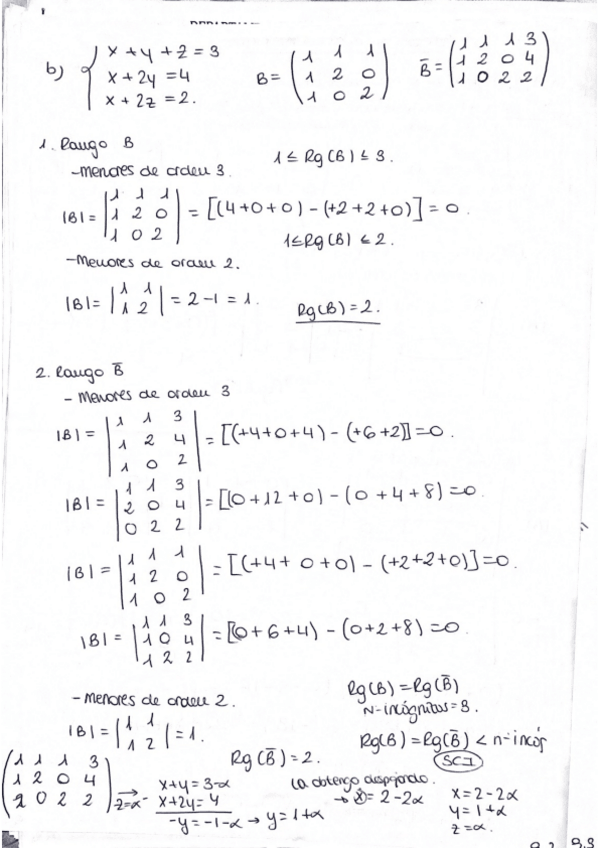 b) { x + y + z = 3
x + 2y = 4
x + 2z = 2.
B = ( 1 1 1
1 2 0
1 0 2 )
B̄ = ( 1 1 1 3
1 2 0 4
1 0 2 2 )
1. Rango B
- Menores de orden 3.
1 ≤ Rg(B) ≤ 3.
|B| = | 1 1 1
1 2 0
1 0 2 | = [(4+0+0) - (+2+2+0)] = 0
1 ≤ Rg(B) ≤ 2.
- Menores de orden 2.
|B| = | 1 1
1 2 | = 2-1 = 1.
Rg(B) = 2.
2. Rango B̄
- Menores de orden 3
|B| = | 1 1 3
1 2 4
1 0 2 | = [(+4+0+4) - (+6+2)] = 0.
|B| = | 1 1 3
2 0 4
0 2 2 | = [(0+12+0) - (0+4+8) = 0.
|B| = | 1 1 1
1 2 0
1 0 2 | = [(+4+0+0) - (+2+2+0)] = 0.
|B| = | 1 1 3
1 0 4
1 2 2 | = [0+6+4) - (0+2+8) = 0
- Menores de orden 2.
|B| = | 1 1
1 2 | = 1.
Rg(B̄) = 2.
Rg(B) = Rg(B̄)
N-incógnitas = 3.
Rg(B) = Rg(B̄) < n-incóg
SCI
( 1 1 1 3
1 2 0 4
1 0 2 2 )
→ z=α
x+y = 3-α
x+2y = 4
-y = -1-α → y = 1+α
la obtengo despejando.
→ x = 2-2α
x = 2-2α
y = 1+α
z = α.